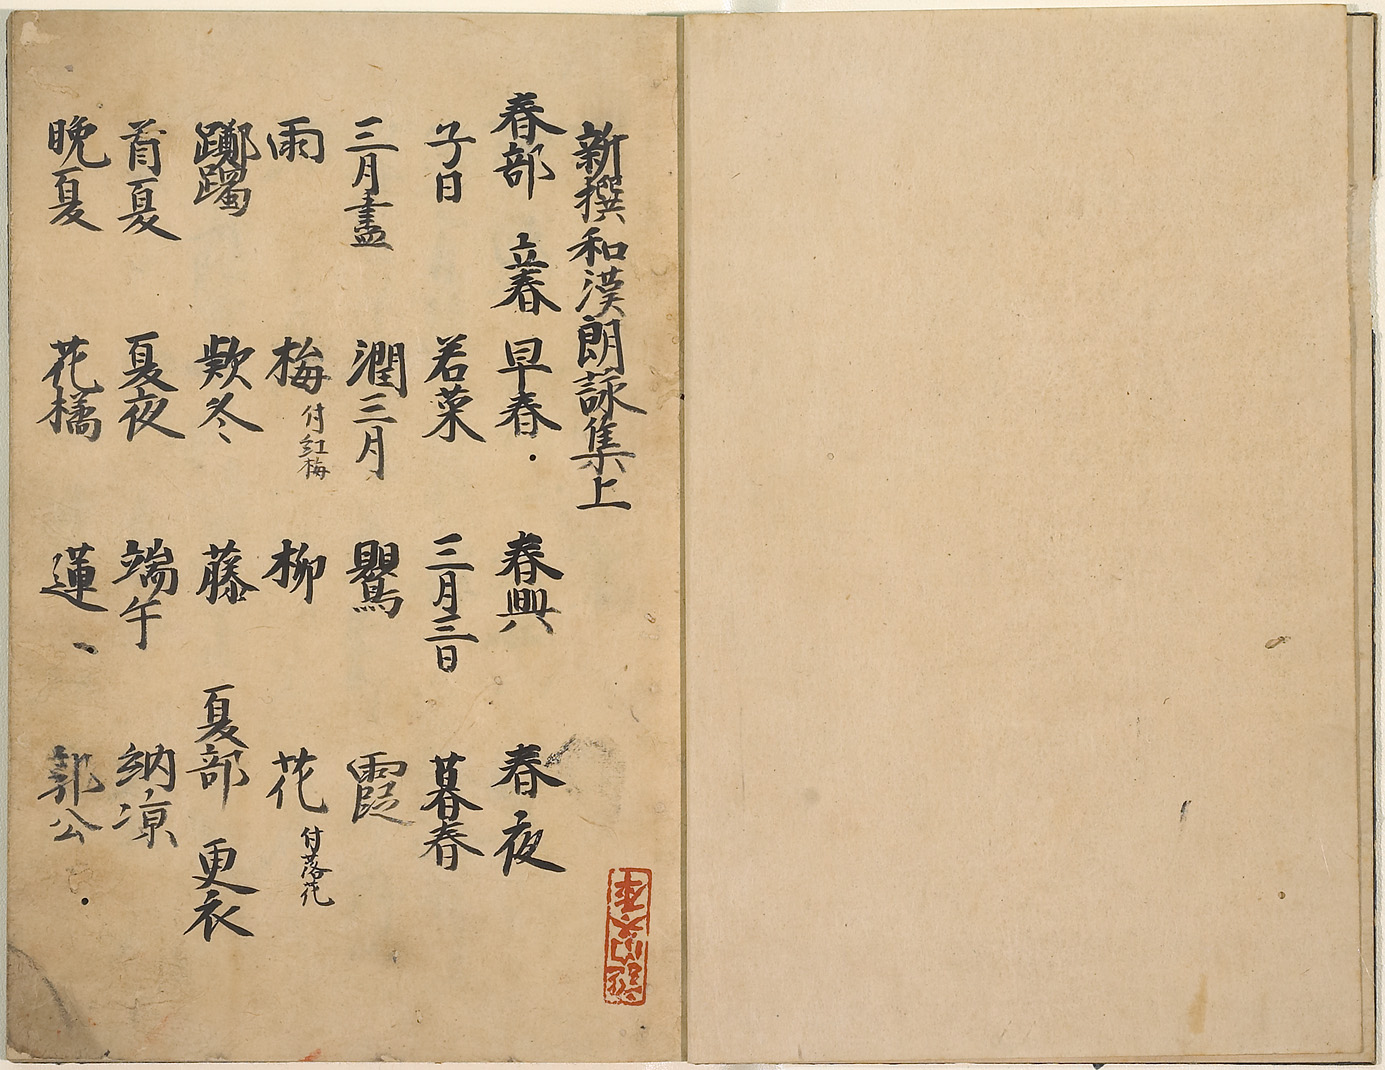 新撰和漢朗詠集上
春部 立春 早春 春興 春夜
子日 若菜 三月三日 暮春
三月盡 潤三月 鸎 霞
雨 梅付紅梅 柳 花付落花
躑躅 欵冬 藤 夏部 更衣
首夏 夏夜 端午 納凉
晩夏 花橘 蓮 郭公